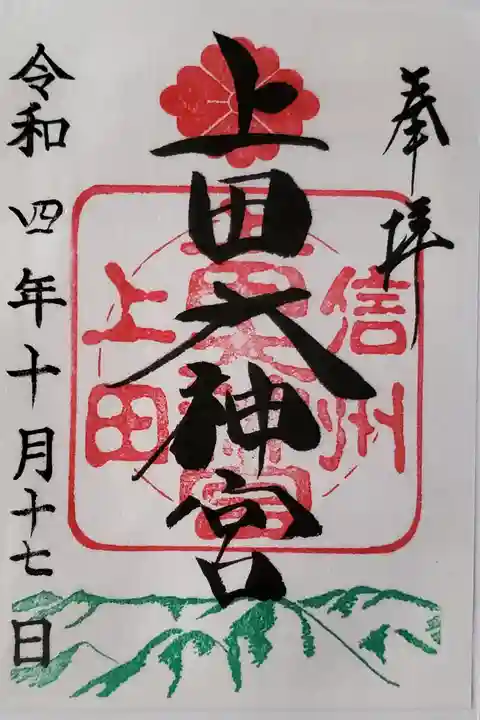 奉拝
上田大神宮
信州
上田
令和四年十月十七日